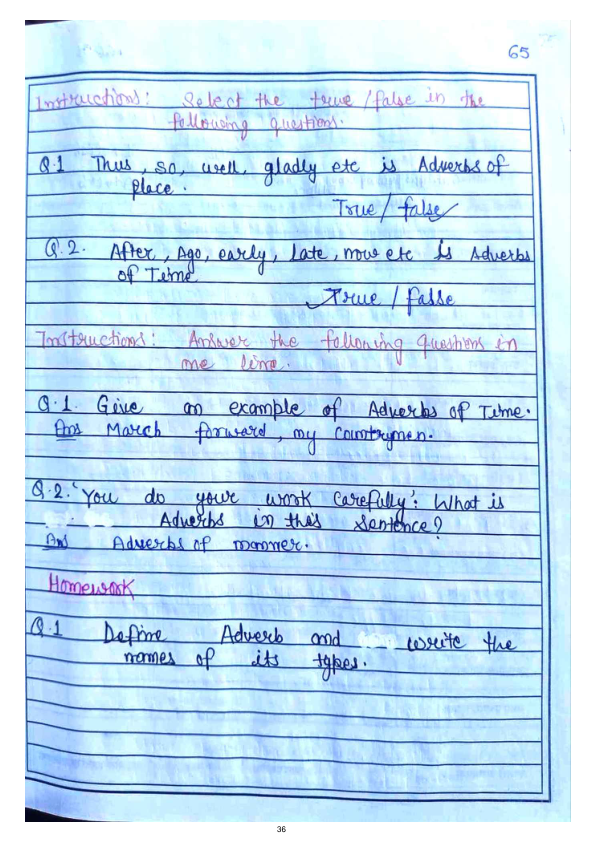 65
Instructions: Select the true/false in the
following questions.
Q.1 Thus, so, well, gladly etc is Adverbs of
place.
True / false
Q.2. After, Ago, early, late, now etc is Adverbs
of Time
True / false
Instructions: Answer the following questions in
one line.
Q.1. Give an example of Adverbs of Time.
Ans March forward, my countrymen.
Q.2. 'You do your work carefully'. What is
Adverbs in this sentence?
Ans Adverbs of manner.
Homework
Q.1 Define Adverb and write the
names of its types.
36